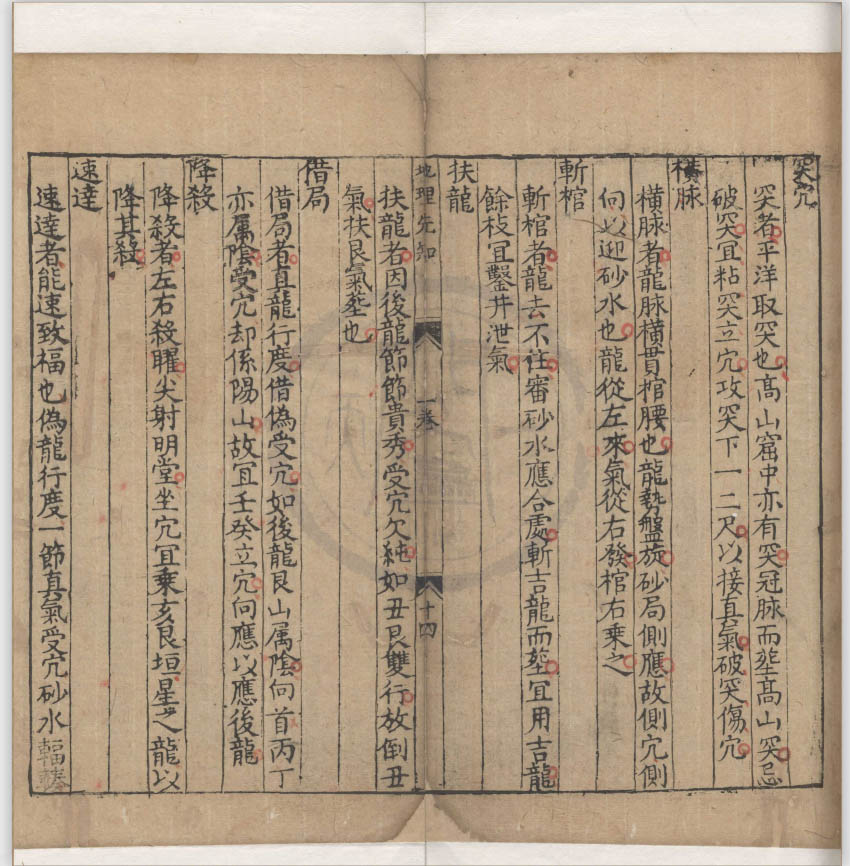 突穴
突者平洋取突也髙山窟中亦有突冠脉而塟髙山突忌
破突冝粘突立穴攻突下一二尺以接真氣破突傷穴
橫脉
橫脉者龍脉橫貫棺腰也龍勢盤旋砂局側應故側穴側
向以迎砂水也龍從左來氣從右發棺右乘之
斬棺
斬棺者龍去不住審砂水應合處斬吉龍而塟冝用吉龍
餘枝冝鑿井泄氣
扶龍
地理先知
一卷
十四
扶龍者因後龍節節貴秀受穴欠純如丑艮雙行放倒丑
氣扶艮氣塟也
借局
借局者直龍行度借偽受穴如後龍艮山属陰向首丙丁
亦属陰受穴却係陽山故冝壬癸立穴向應以應後龍
降殺
降殺者左右殺曜尖射明堂坐穴冝乘亥艮垣星之龍以
降其殺
速達
速達者能速致福也偽龍行度一節真氣受穴砂水輻輳